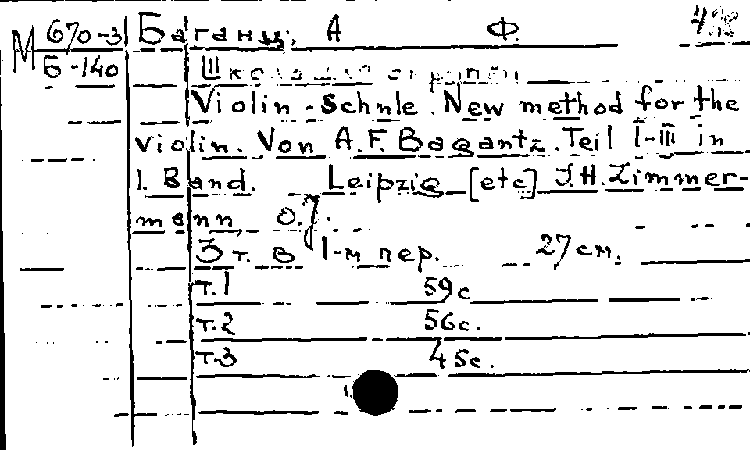 М 670-3 Баганц, А Ф.
Б-140 Школа для скрипки
Violin-Schule. New method for the
violin. Von A.F. Bagantz. Teil I-III in
1. Band. Leipzig [etc] J.H. Zimmer-
mann, o.J.
3 т. в 1-м пер. 27 см.
т.1 59с
т.2 56с.
т.3 45с.